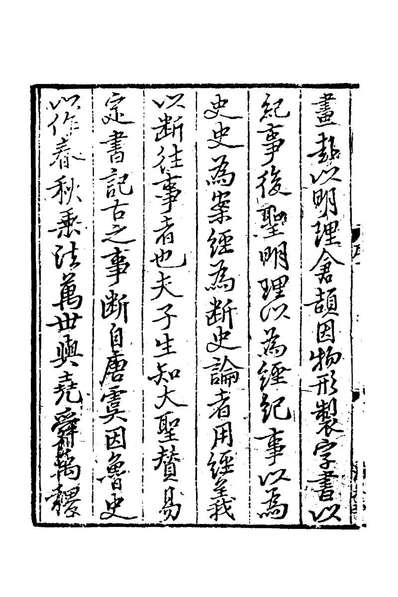 畫卦以明理倉頡因物形製字書以
紀事後聖明理以為經紀事以為
史史為案經為斷史論者用經義
以断往事者也夫子生知大聖贊易
定書記古之事断自唐虞因魯史
以作春秋垂法萬世與堯舜萬禩